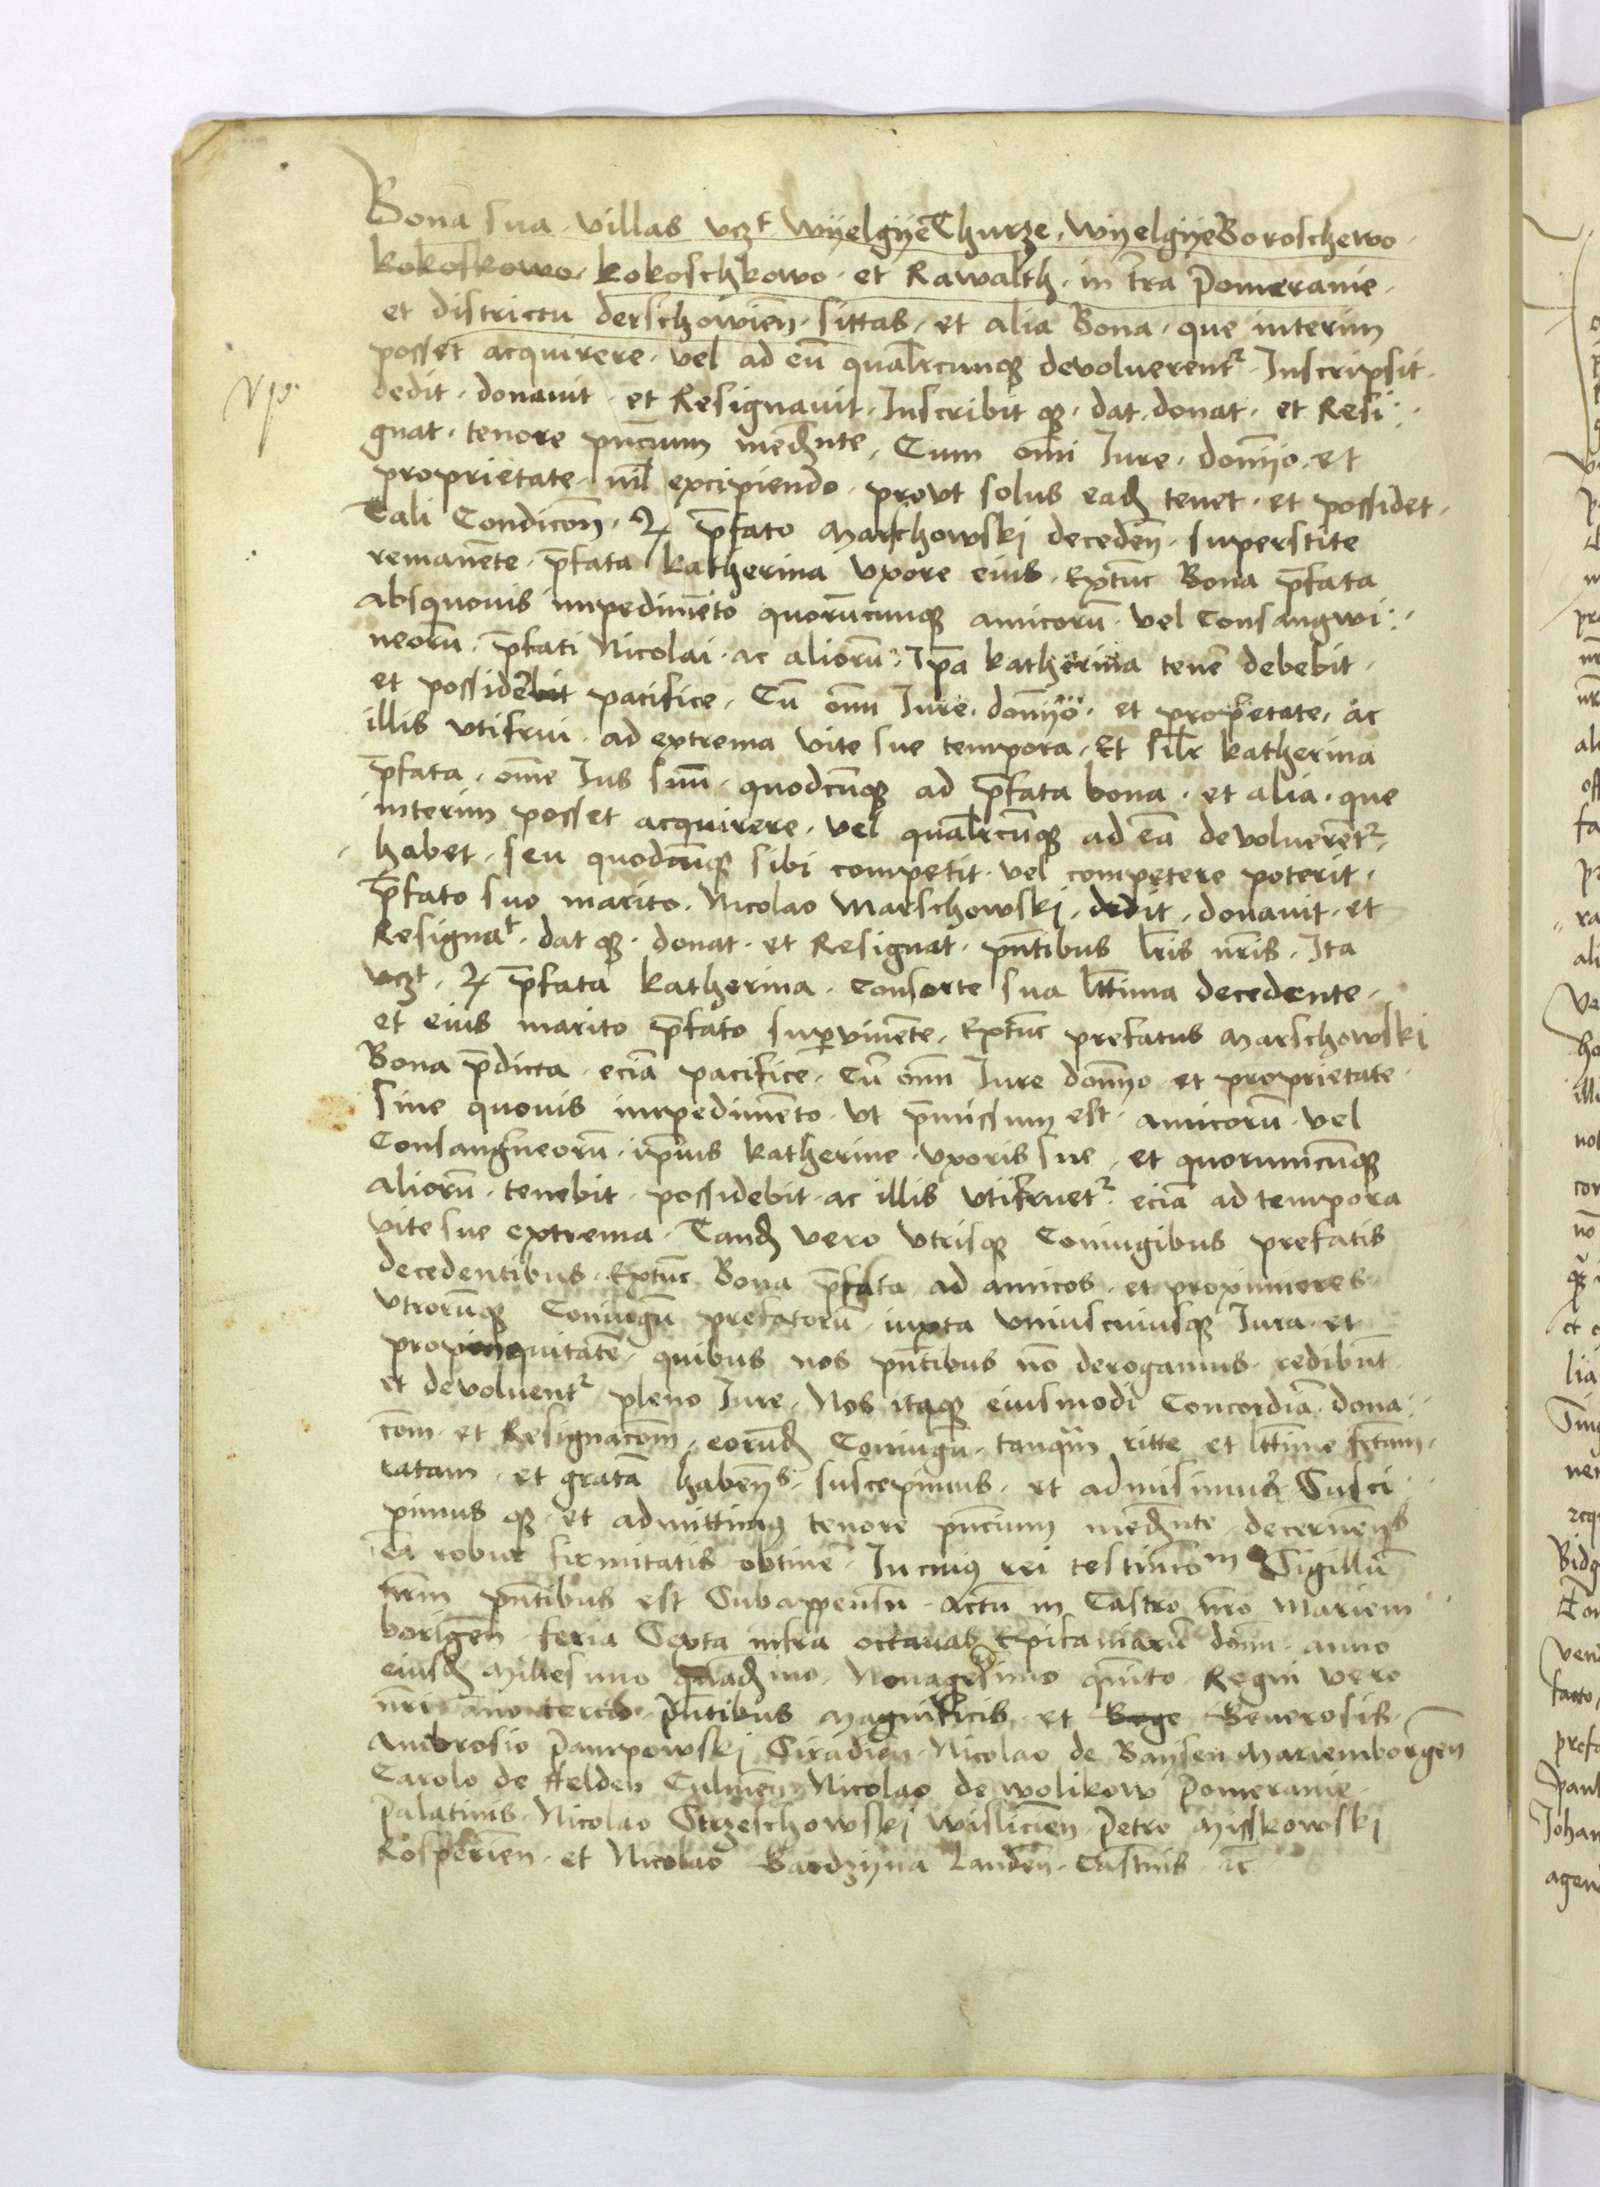 Bona sua villas vczt WyelgyeThurze, WyelgyeBoroschewo
kokoskowo kokoschkowo et Rawalth in tra Pomeranie
et districtu derschowien sittas, et alia Bona que interim
posset acquirere vel ad eu qualrcunque devoluerentr Inscripsit
dedit donauit et Resignauit Inscribit que dat donat et Resi
gnat tenore pncium medte, Cum omi Iure domijo et
proprietate nil excipiendo provt solus ead tenet et possidet
Tali Condicon, prefato Marschowski deceden superstite
remanete prefata katherina vxore eius, Extunc Bona prefata
absquouis impedimeto quorucunque amicoru vel Consangwi
neoru prefati Nicolai ac alioru, Ipa katherina tene debebit
et possidere pacifice, Cu omi Iure domijo et propetate, ac
illis vtifrui ad extrema vite sue tempora, Et silr katherina
prefata, ome Ius suu quodcunque ad prefata bona et alia que
interim posset acquirere, vel qualrcunque ad ea devoluerentr
habet, seu quodcunque sibi competit vel competere poterit
prefato suo marito Nicolao Marschowski, dedit, donauit et
Resignat, dat que donat et Resignat pntibus lris nris, Ita
vczt, prefata katherina Consorte sua lttima decedente
et eius marito prefato superviuente, Extunc prefatus Marschowski
Bona predicta ecia pacifice, Cu omi Iure domijo et proprietate
Sine quouis impedimento vt premissum est amicoru vel
Consangneoru ipius katherine vxoris sue, et quorumcunque
alioru tenebit possidebit ac illis vtifruetr ecia ad tempora
vite sue extrema, Tand vero vtrisque Coniugibus prefatis
decedentibus, Extunc Bona prefata ad amicos et proximiores
vtrorunque Coniugu prefatoru iuxta vniuscuiusque Iura et
propinquitate, quibus nos pntibus no derogamus redibunt
et devoluentr pleno Iure, Nos itaque eiusmodi Concordia dona
com et Resignacom, eorund Coniugu tanquam ritte et lttime fctam
ratam et grata habens suscepimus et admisimus Susci
pimus que et admittimus tenore pncium medte decernens
ea robur firmitatis obtine In cuius rei testimom Sigillu
nrm pntibus est Subappensu actu in Castro nro Mariem
borigen feria Sexta infra octauas Epifaniaru domi anno
eiusd Millesimo quadmo Nonagesimo quinto Regni vero
nri anno tercio pntibus Magnificis et Bege Generosis
Ambrosio Pampowski Siradien Nicolao de Baysen Mariemborgen
Carolo de ffelden Culmen Nicolao de Wolikow Pomeranie
Palatinis Nicolao Strzeschowski wislicien Petro Misskowski
Rosperien et Nicolao Bardzyna Landen Castnis etc